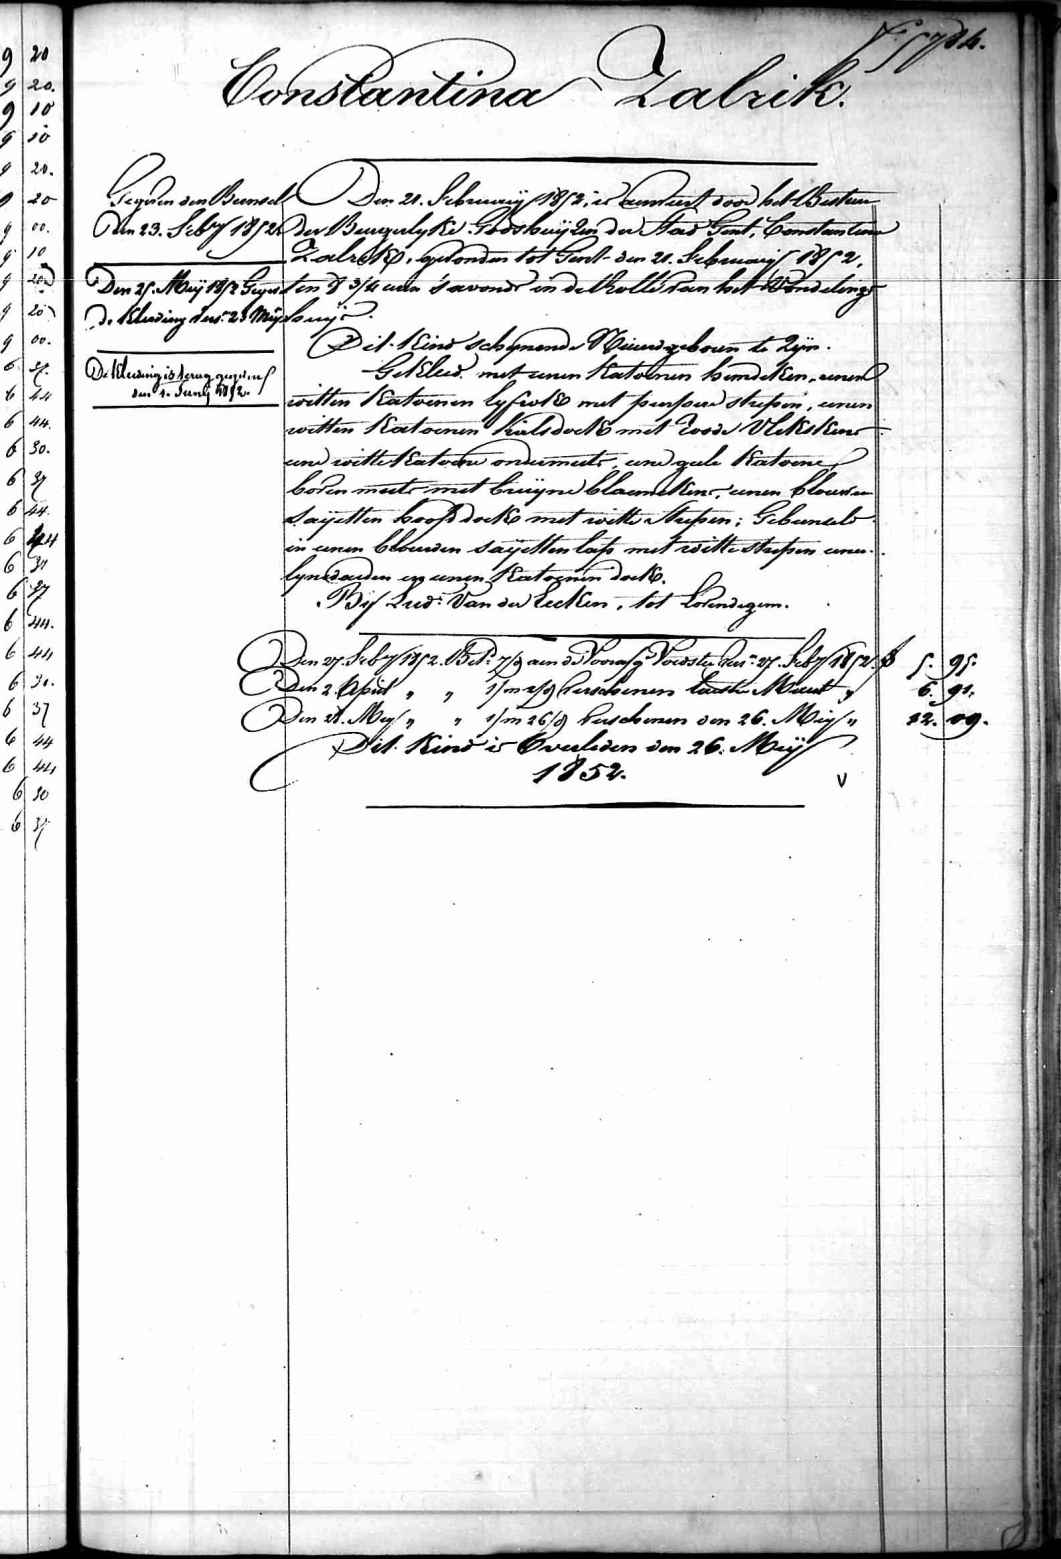 Constantina Zalrik.
Gegeven den Bunsel
Den 23. Feby 1852.
Den 25. Meij 1852 Gegev
de Kleeding vers. 25 Meij
De Kleeding is terug gegeven
den 1. Junij 1852.
Den 21. Februarij 1852, is aenveert door het Bestuer
der Burgerlyke Godshuijzen der Stad Gent, Constantina
Zalrik, gevonden tot Gent den 21. Februarij 1852,
ten 8 3/4 uren s'avonds in de Rolle van het Vondelings
huijs.
Dit Kind schynende Nieuwgeboren te Zijn.
Gekleed met eenen Katoenen hemdeken, eenen
witten Katoenen lyfrok met purpere strepen, eenen
witten Katoenen halsdoek met roode Vlekskens
eene witte Katoene ondermuts, eene geele Katoene
boven muts met bruijne bloemekens, eenen blauwen
saijetten hoofddoek met witte strepen; Gebunseld
in eenen blauwen saijetten lap met witte strepen eenen
lynwaeden en eenen Katoenen doek.
Bij Lud. Van der Eecken, tot Lovendegem.
Den 27. Feby 1852. Bet. 7/9 aen de Voorsg. Voedster vers. 27. Feby 1852. f 5. 95.
Den 2. April " " 1/m 2/9 verschenen laeste Maert " 6. 91.
Den 28. Meij " " 1/m 26/9 verschenen den 26. Meij " 12. 09.
Dit Kind is Overleden den 26. Meij
1852.
V
9 20
9 20.
9 10
9 10
9 20.
9 20
9 00.
9 10
9 20
9 20
9 00.
6 37.
6 44
6 44.
6 30.
6 37
6 44.
6 44
6 30
6 37
6 44.
6 44
6 30.
6 37
6 44
6 44
6 30
6 37